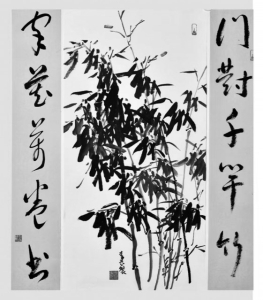 門對千竿竹
家藏萬卷書